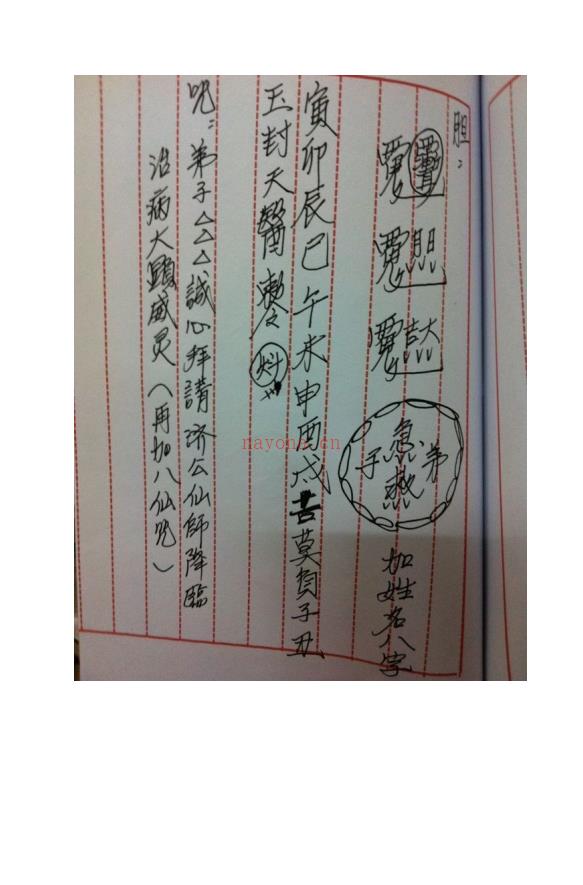 胆：
急救
弟子
加姓名八字
寅卯辰巳午未申酉戌 莫負子丑
玉封天醫
咒：弟子△△△誠心拜請济公仙師降臨
治病大顕威灵（再加八仙咒）
nayona.cn